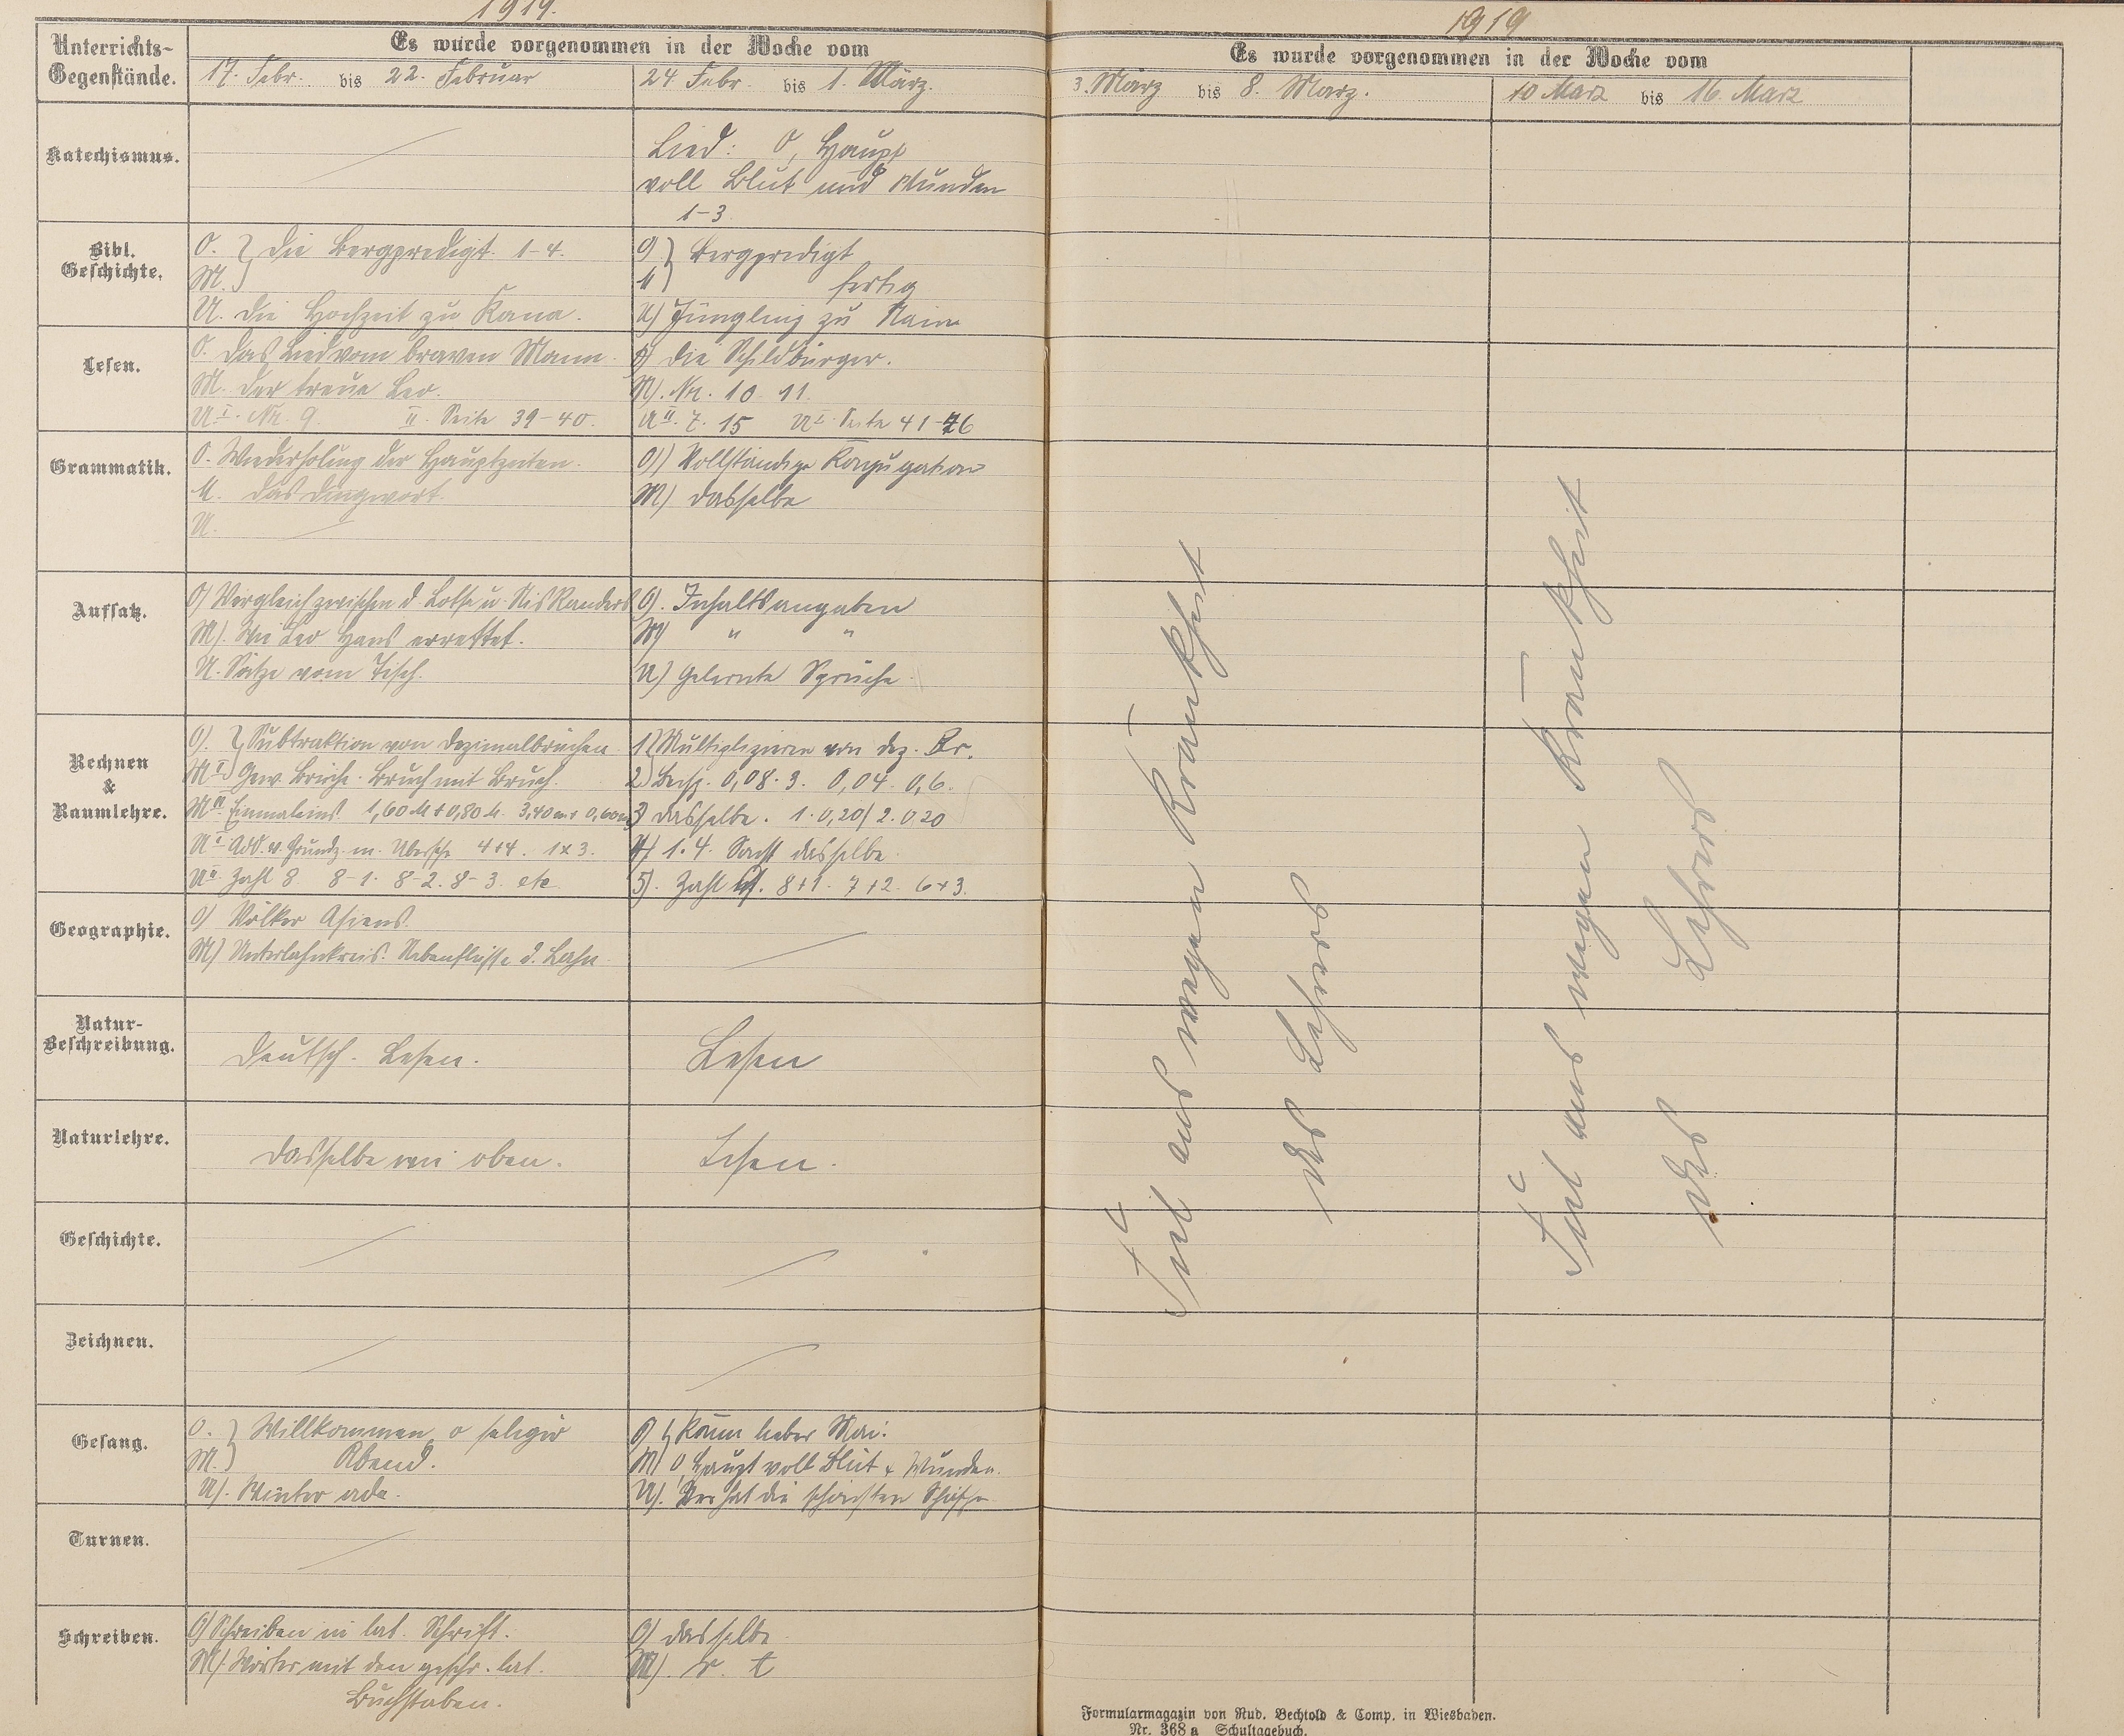 1919.
1919
Unterrichts-
Gegenstände.
Es wurde vorgenommen in der Woche vom
17. Febr. bis 22. Februar
24. Febr. bis 1. März.
Es wurde vorgenommen in der Woche vom
3. März bis 8. März.
10 März bis 16. März
Katechismus.
Lied: O, Haupt
voll Blut und Wunden
1-3.
Bibl.
Geschichte.
O. } Die Bergpredigt. 1-4.
M. }
U. Die Hochzeit zu Kana.
O) } Bergpredigt
M } fertig
U) Jüngling zu Nain
Lesen.
O. Das Lied vom braven Mann.
M. Der treue Leo.
U I. Nr. 9. II. Seite 39-40.
O) Die Schildbürger.
M). Nr. 10 11.
U II. 7. 15 U I. Seite 41-46
Grammatik.
O. Wiederholung der Hauptzeiten.
M. Das Dingwort.
U.
O) Vollständige Konjugation
M) Dasselbe
Aufsatz.
O) Vergleich zwischen d. Lotse u. Nis Randers
M). Wie Leo Hans errettet.
U. Sätze vom Tisch.
O). Inhaltsangaben
M) " "
U) Gelernte Sprüche.
Rechnen
&
Raumlehre.
O). } Subtraktion von Dezimalbrüchen.
M I } Gew. Brüche. Bruch mit Bruch.
M II. Einmaleins 1,60 M + 0,80 M. 3,40 m + 0,60 m
U I Add. v. Grundz. m. 4+4. 1x3.
U II. Zahl 8. 8-1. 8-2. 8-3. etc
1) Multiplizieren von dez. Br.
2) Beisp. 0,08·3. 0,04·0,6.
3) Dasselbe. 1·0,20/ 2·0,20
4) 1·4. Sonst dasselbe.
5). Zahl 9. 8+1. 7+2. 6+3.
Geographie.
O) Völker Asiens.
M) Unterlahnkreis. Nebenflüsse d. Lahn.
Natur-
Beschreibung.
Deutsch. Lesen.
Lesen
Naturlehre.
Dasselbe wie oben.
Lesen.
Geschichte.
Zeichnen.
Gesang.
O. } Willkommen, o seliger
M. } Abend.
U). Winter ade.
O) } Komm lieber Mai.
M) O, Haupt voll Blut & Wunden.
U). Wer hat die schönsten Schäfchen.
Turnen.
Schreiben.
O) Schreiben in lat. Schrift.
M) Wörter mit den geschr. lat.
Buchstaben.
O) Dasselbe
M). r. t
Fiel aus wegen Krankheit
des Lehrers
Fiel aus wegen Krankheit
des Lehrers
Formularmagazin von Rud. Bechtold & Comp. in Wiesbaden.
Nr. 368 a Schultagebuch.